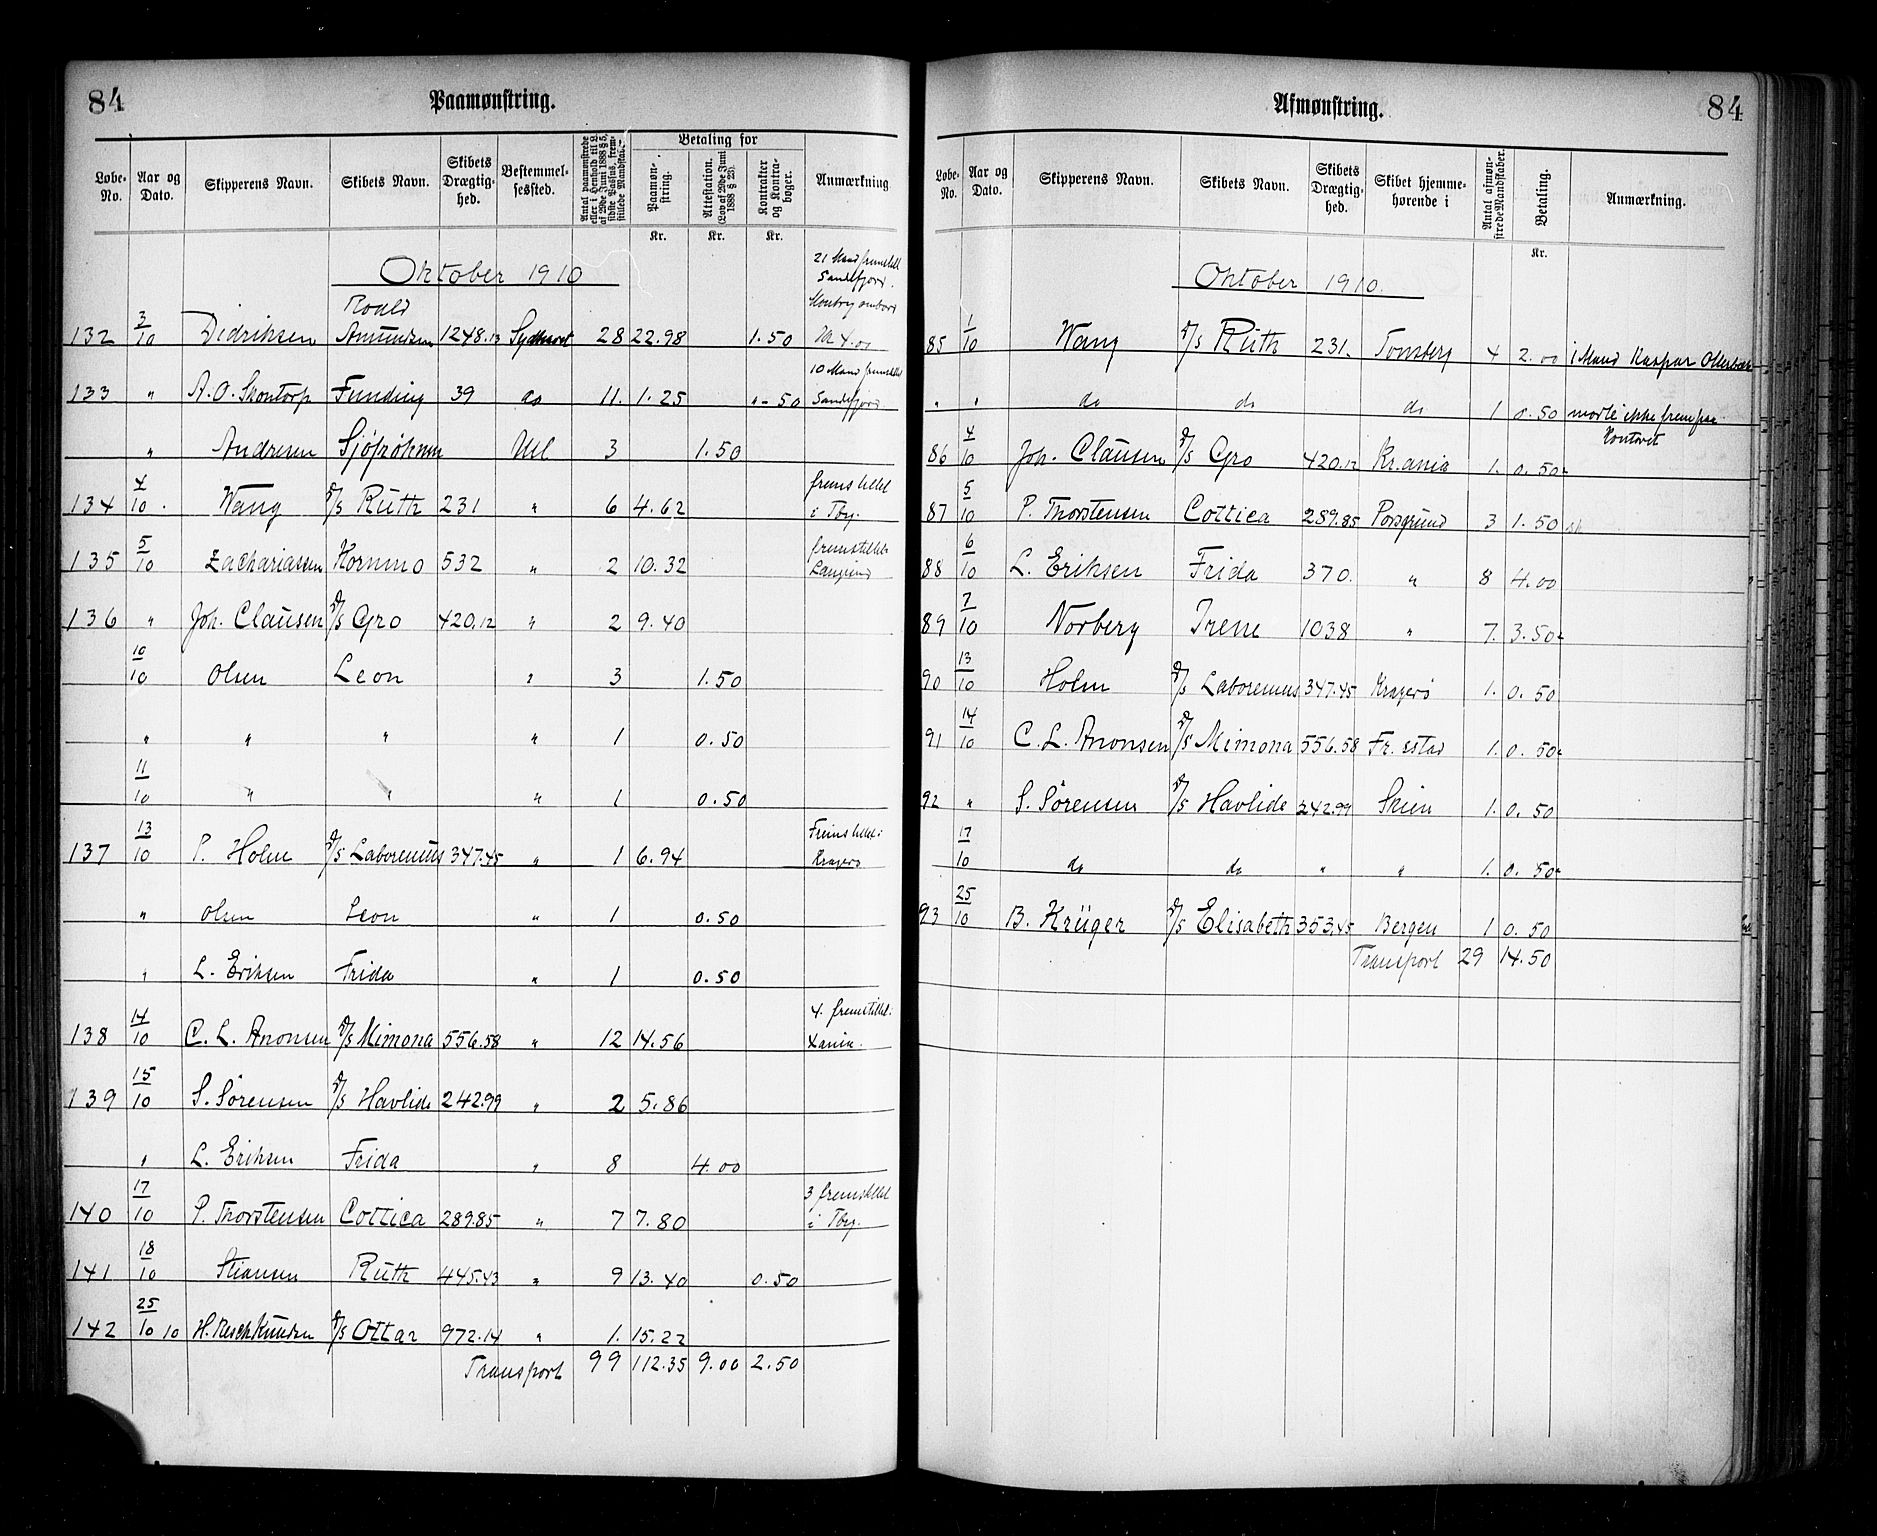 84
Paamønstring.
Løbe-No. Aar og Dato. Skipperens Navn. Skibets Navn. Skibets Drægtighed. Bestemmelsessted. Antal paamønstrede eller i Henhold til L. af 29de Juni 1888 § 5, sidste Passus, fremstillede Mandskaber. Betaling for Paamønstring. Attestation. (Lov af 29de Juni 1888 § 23). Kontrakter og Kontrabøger. Anmærkning.
Kr. Kr. Kr.
Oktober 1910
21 Mand fremstillet Sandefjord. Kr 4.00
132 3/10 Didriksen Roald Amundsen 1248.13 Sydhavet 28 22.98 1.50
133 " A. O. Skontorp Funding 39 do 11. 1.25 "-50 10 Mand fremstillet Sandefjord.
" Andresen Udl 3 1.50
134 4/10 Wang D/S Ruth 231 " 6 4.62 fremstillet i Tbg.
135 5/10 Zachariassen Kornmo 532 " 2 10.32 fremstillet Langesund
136 " Joh. Clausen D/S Gro 420.12 " 2 9.40
10/10 Olsen Leon " 3 1.50
" " " " 1 0.50
11/10 " " " 1 0.50
137 13/10 P. Holm D/S Laboremus 347.45 " 1 6.94 Fremstillet i Kragerø
" Olsen Leon " 1 0.50
" L. Eriksen Frida " 1 0.50
138 14/10 C. L. Aronsen D/S Mimona 556.58 " 12 14.56 4 fremstillet. Xania.
139 15/10 S. Sørensen D/S Havlide 242.99 " 2 5.86
" L. Eriksen Frida " 8 4.00
140 17/10 P. Thorstensen Cottica 289.85 " 7 7.80 3 fremstillet i Tbg.
141 18/10 Stiansen Ruth 445.43 " 9 13.40 0.50
142 25/10 10 H. Resch Knudsen D/S Ottar 972.14 " 1. 15.22
Transport 99 112.35 9.00 2.50
84
Afmønstring.
Løbe-No. Aar og Dato. Skipperens Navn. Skibets Navn. Skibets Drægtighed. Skibet hjemmehørende i Antal afmønstrede Mandskaber. Betaling. Anmærkning.
Kr.
Oktober 1910.
85 1/10 Wang D/S Ruth 231. Tønsberg 4 2.00 1 Mand Kaspar
" " do do do 1 0.50 mødte ikke frem paa Kontoret
86 4/10 Joh. Clausen D/S Gro 420.12 Kr.ania 1. 0.50
87 5/10 P. Thorstensen Cottica 289.85 Porsgrund 3 1.50
88 6/10 L. Eriksen Frida 370. " 8 4.00
89 7/10 Norberg Irene 1038 " 7. 3.50
90 13/10 Holm D/S Laboremus 347.45 Kragerø 1. 0.50
91 14/10 C. L. Aronsen D/S Mimona 556.58 Fr.stad 1. 0.50
92 " S. Sørensen D/S Havlide 242.99 Skien 1. 0.50
17/10 do do " " 1. 0.50
93 25/10 B. Krüger D/S Elisabeth 353.45 Bergen 1 0.50
Transport 29 14.50